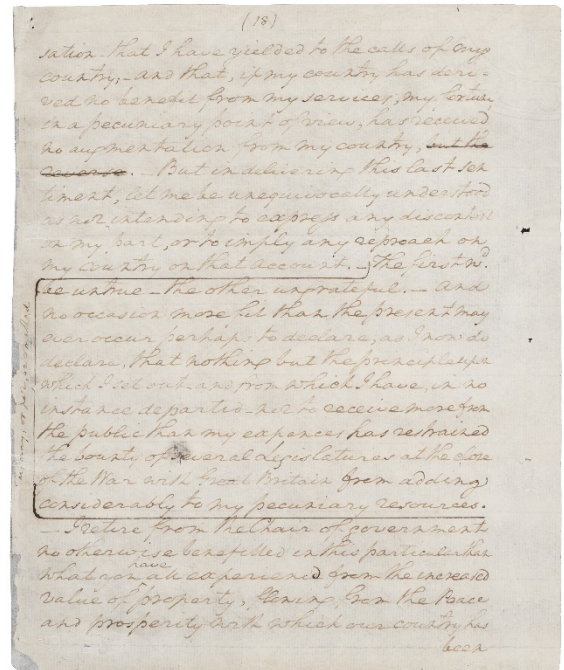 (18)
sation that I have yielded to the calls of my
country;—and that, if my country has deri-
ved no benefit from my services, my fortune
in a pecuniary point of view, has received
no augmentation from my country, but the
reverse. But in delivering this last sen
timent, let me be unequivocally understood
as not intending to express any discontent
on my part, or to imply any reproach on
my country on that account.—The first wd.
be untrue—the other ungrateful.—And
no occasion more fit than the present may
ever occur perhaps to declare, as I now do
declare, that nothing but the principle upon
which I set out and from which I have, in no
instance departed—not to receive more from
the public than my expences has restrained
the bounty of several Legislatures at the close
of the War with Great Britain from adding
considerably to my pecuniary resources.
I retire from the Chair of government
no otherwise benefitted in this particular than
what you all have experienced from the increased
value of property, flowing from the Peace
and prosperity with which our country has
been